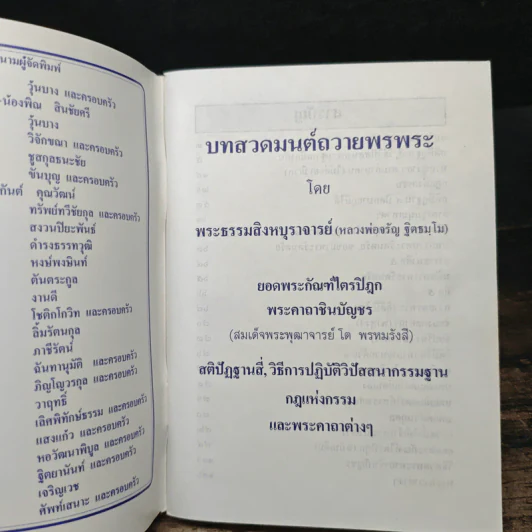 นามผู้จัดพิมพ์
วุ้นบาง และครอบครัว
น้องพิณ สินชัยศรี
วุ้นบาง
วิจักขณา และครอบครัว
ชูสกุลธนะชัย
ขันบุญ และครอบครัว
กันต์ คุณวัฒน์
ทรัพย์ทวีชัยกุล และครอบครัว
สงวนปิยะพันธ์
ดำรงธรรทวุฒิ
หงษ์พงษินท์
ตันตระกูล
งานดี
โชติกโกวิท และครอบครัว
ลิ้มรัตนกุล
ภาชีรัตน์
ฉันทานุมัติ และครอบครัว
ภิญโญวรกุล และครอบครัว
วาฤทธิ์
เลิศพิทักษ์ธรรม และครอบครัว
แสงแก้ว และครอบครัว
หอวัฒนาพิบูล และครอบครัว
ฐิตยานันท์ และครอบครัว
เจริญเวช
ศัพท์เสนาะ และครอบครัว
บทสวดมนต์ถวายพรพระ
โดย
พระธรรมสิงหบุราจารย์ (หลวงพ่อจรัญ ฐิตธมฺโม)
ยอดพระกัณฑ์ไตรปิฎก
พระคาถาชินบัญชร
(สมเด็จพระพุฒาจารย์ โต พรหมรังสี)
สติปัฏฐานสี่, วิธีการปฏิบัติวิปัสสนากรรมฐาน
กฎแห่งกรรม
และพระคาถาต่างๆ